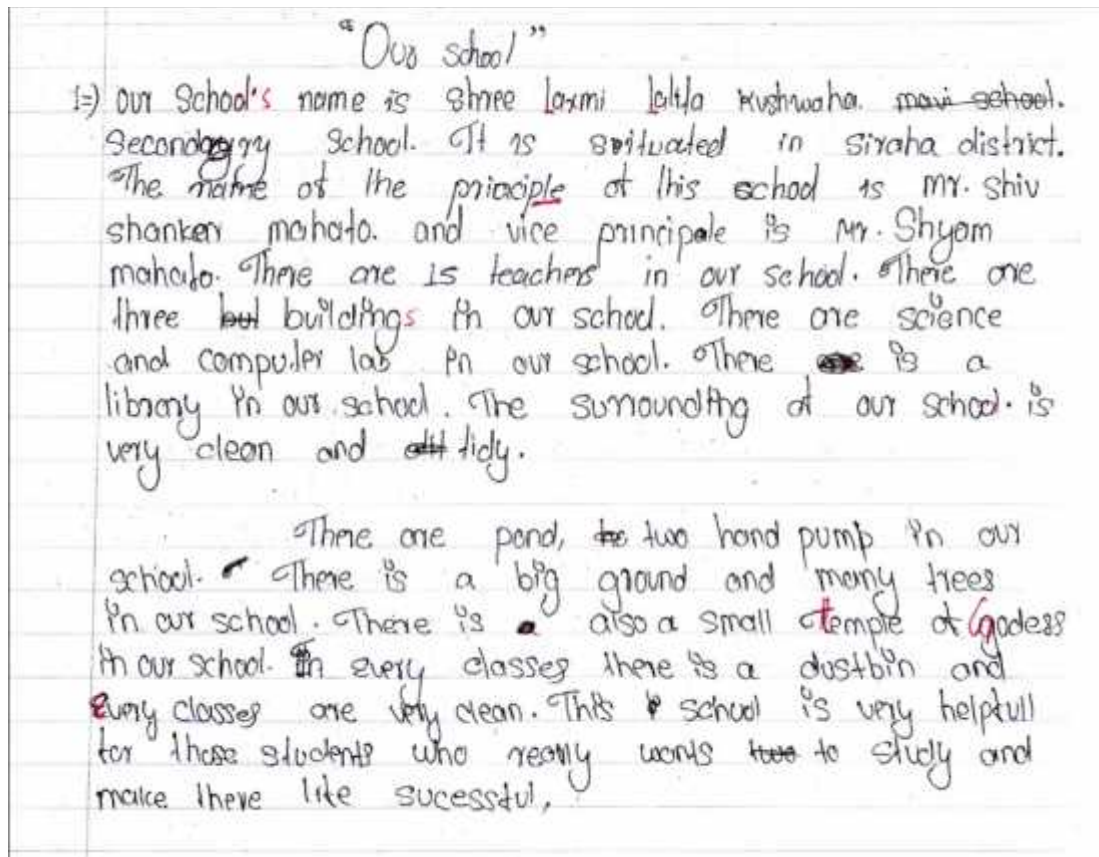 "Our school"
1=) our School's name is shree Laxmi Lalita kushwaha mavi school.
Secondary School. It is situated in siraha district.
The name of the principle of this school is mr. shiv
shanker mahato. and vice principale is Mr. Shyam
mahato. There are 15 teachers in our school. There are
three but buildings in our school. There are science
and computer lab in our school. There is a
library in our school. The surrounding of our school is
very clean and tidy.
There are pond, two hand pump in our
school. There is a big ground and many trees
in our school. There is also a small temple of Godess
in our school. In every classes there is a dustbin and
Every classes are very clean. This school is very helpfull
for those students who really wants to study and
make there life sucessful,